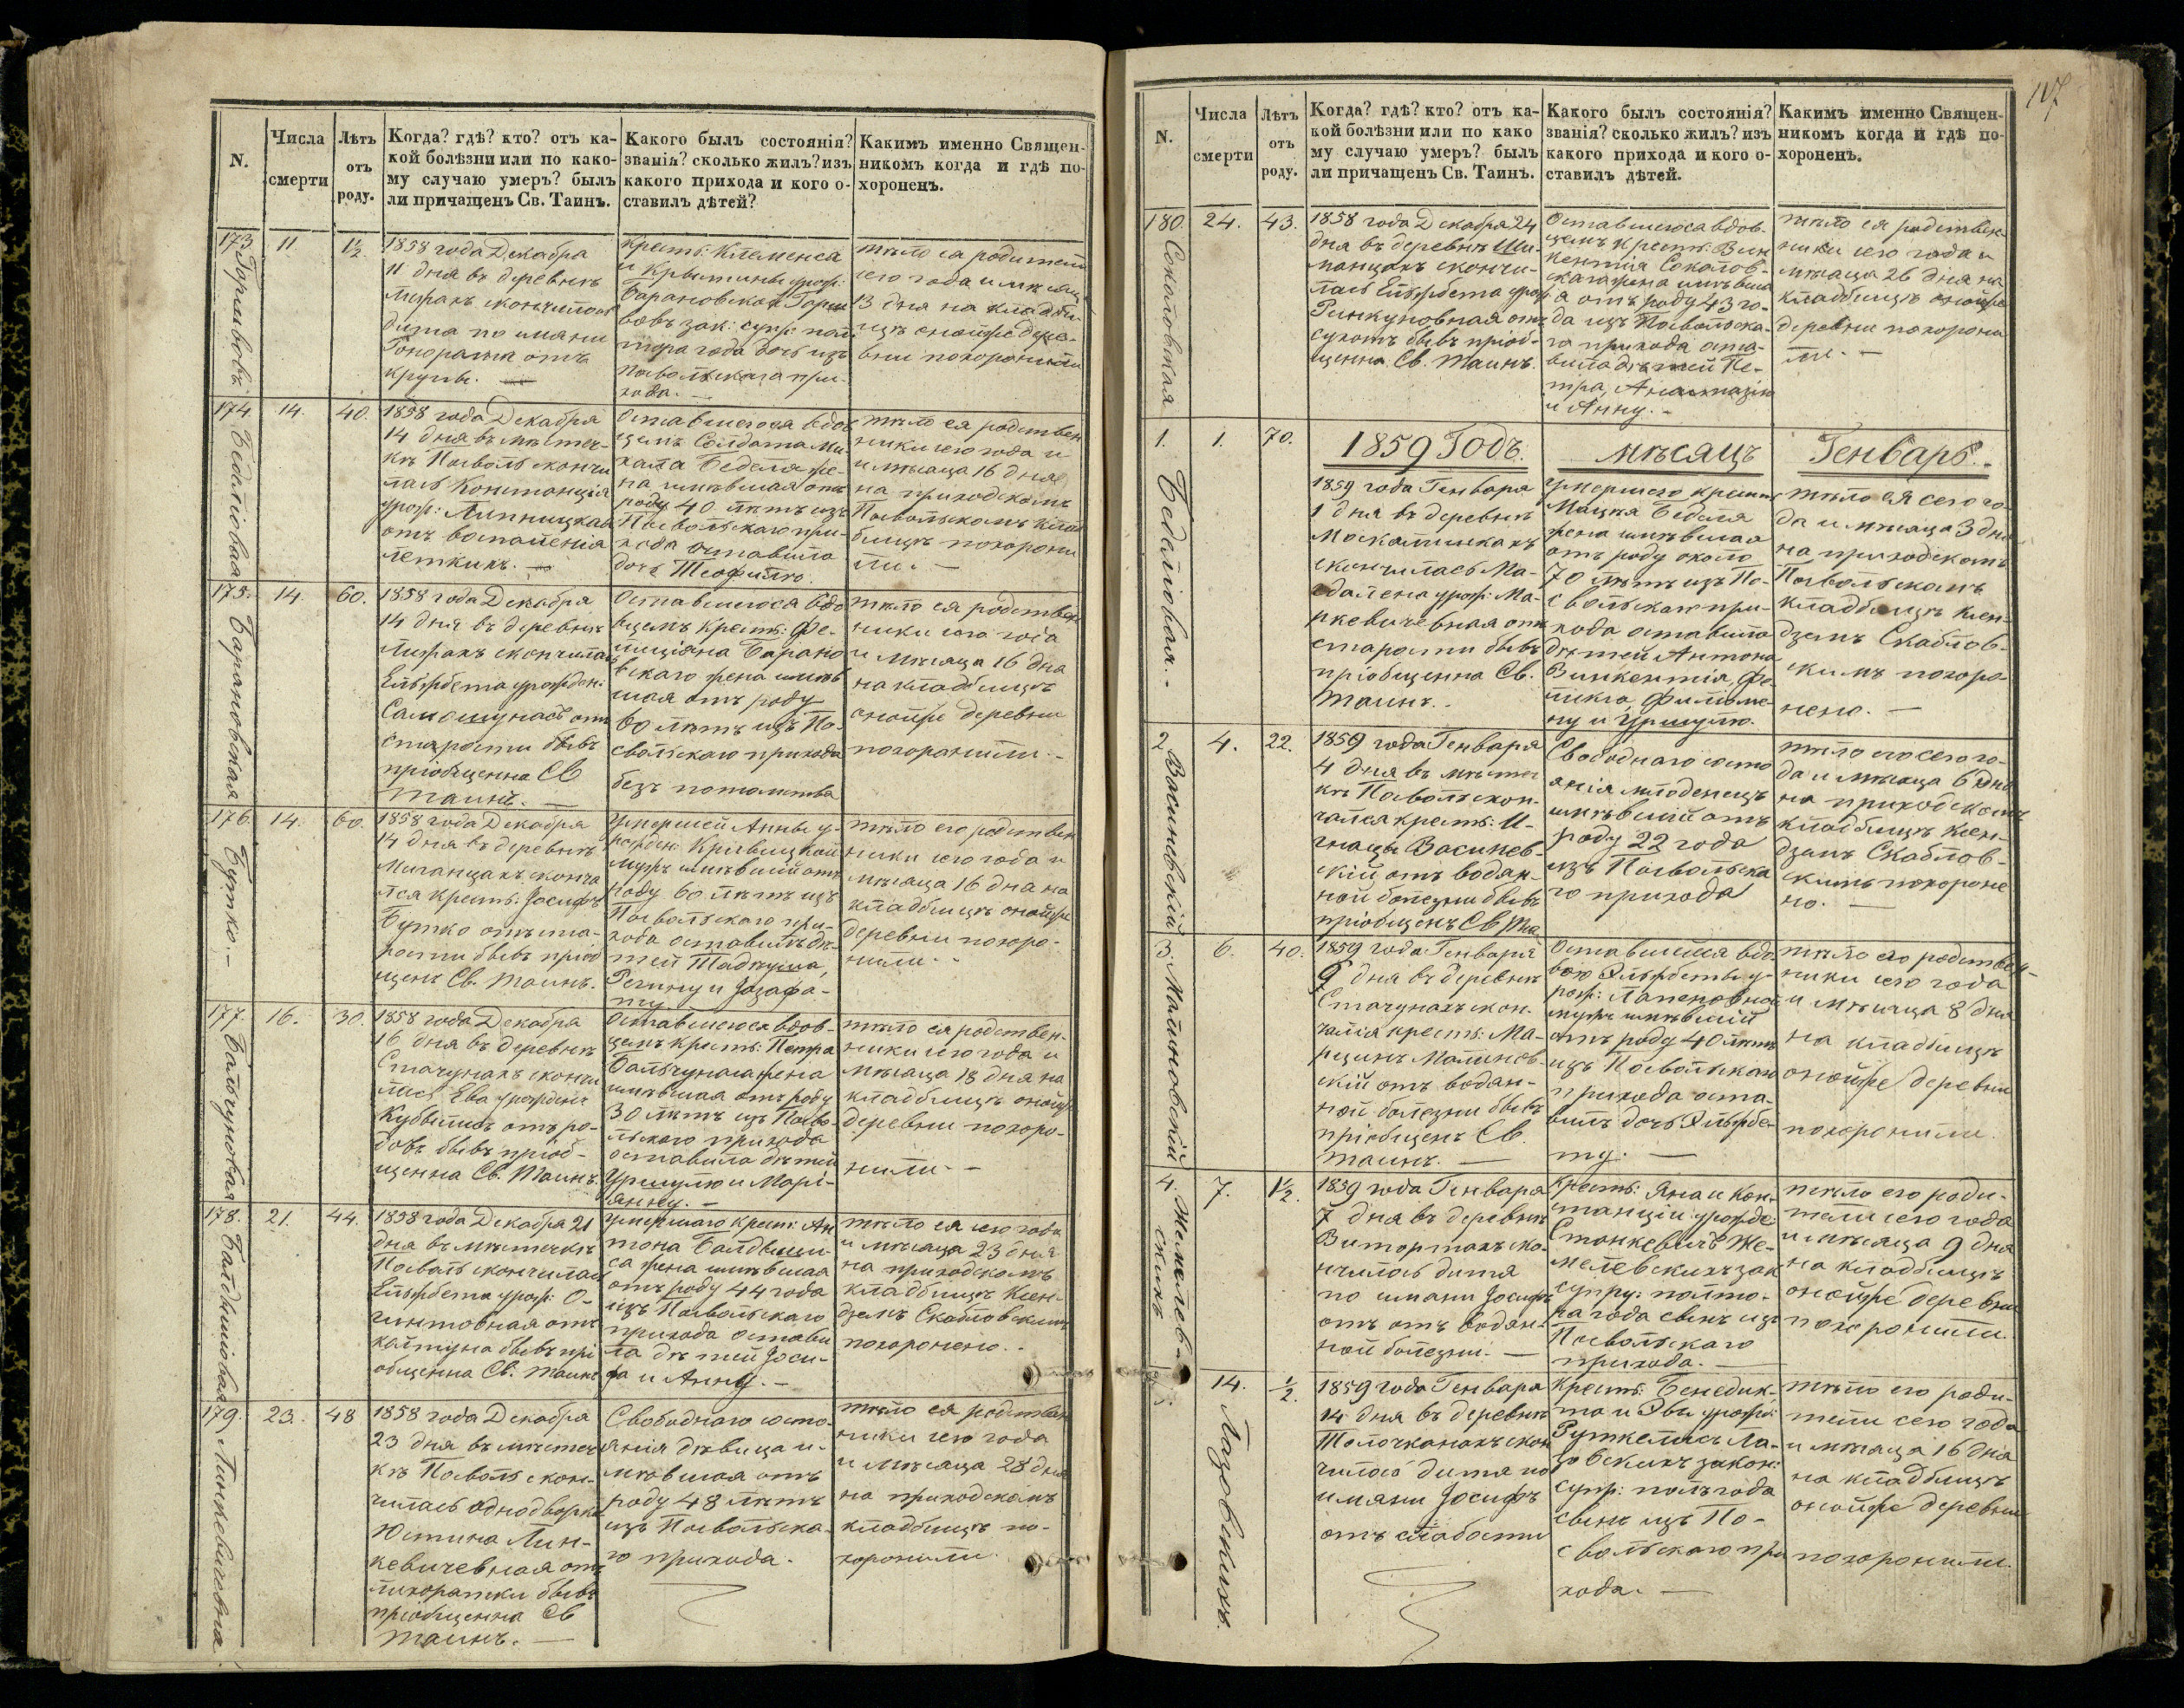 N.
Числа
смерти
Лѣтъ
отъ
роду.
Когда? гдѣ? кто? отъ ка-
кой болѣзни или по како-
му случаю умеръ? былъ
ли причащенъ Св. Таинъ.
Какого былъ состоянія?
званія? сколько жилъ? изъ
какого прихода и кого о-
ставилъ дѣтей?
Какимъ именно Священ-
никомъ когда и гдѣ по-
хороненъ.
173
11
1½
1858 года Декабра
11 дня въ деревнѣ
скончилось
дитя по имяни
Гонората отъ
крупы.
Крест: Клеменса
и Крыстины урож:
Барановской
зак: супр: пол
тора года дочь изъ
Посвольскаго при-
хода.
тѣло са родители
сего года и мѣсяца
13 дня на кладби-
щѣ онойже дере-
вни похоронили
174.
Бедалювая
14.
40.
1858 года Декабря
14 дня въ мѣстеч-
кѣ Посволь скончи
лась Констанція
урож: Липницкая
отъ воспаленія
легкихъ.
Оставшегося вдов
цемъ Солдата Ми-
хала Беделя же-
на имѣвшая отъ
роду 40 лѣтъ изъ
Посвольскаго при-
хода оставила
дочь Теофилю.
тѣло ея родствен
ники сего года и
и мѣсяца 16 дня
на приходскомъ
Посвольскомъ клад
бищѣ похорони
ли. —
175.
Барановская
14.
60.
1858 года Декабря
14 дня въ деревнѣ
скончилась
Ельжбета урожден:
отъ
старости бывъ
пріобщенна Св
Таинъ. —
Оставшегося вдо
вцемъ Крест: Фе-
лиціяна Барано
вскаго жена имѣв
шая отъ роду
60 лѣтъ изъ По-
свольскаго прихода
безъ потомства
тѣло ея родствен
ники сего года
и мѣсяца 16 дня
на кладбищѣ
онойже деревни
похоронили.-
176.
Бутко.-
14.
60.
1858 года Декабря
14 дня въ деревнѣ
сконча
лся Крест: Іосифъ
Бутко отъ ста-
рости бывъ пріоб
щенъ Св. Таинъ.
Умершей Анны у-
рожден: Кривицкой
мужъ имѣвшій отъ
роду 60 лѣтъ изъ
Посвольскаго при-
хода оставилъ дѣ-
тей Тадеуша,
Регину и Іозафа-
ту
тѣло его родствен
ники сего года и
мѣсяца 16 дня на
кладбищѣ онойже
деревни похоро-
нили..
177.
Бальчуновая
16.
30.
1858 года Декабра
16 дня въ деревнѣ
Стачунахъ скончи
лась Ева урожден
отъ ро-
довъ бывъ пріоб-
щенна Св. Таинъ.
Оставшегося вдов-
цемъ Крест: Петра
Бальчунаса жена
имѣвшая отъ роду
30 лѣтъ изъ Посво-
льскаго прихода
оставила дѣтей
Уршулю и Марі-
янну. -
тѣло ея родствен-
ники сего года и
мѣсяца 18 дня на
кладбищѣ онойже
деревни похоро-
нили.-
178.
Балдвишювая
21.
44.
1858 года Декабря 21
дня въ мѣстечкѣ
Посволь скончилась
Ельжбета урож: О-
гинтовная отъ
калтуна бывъ прі
общенна Св. Таинъ
Умершаго крест: Ан
тона Балдвиши-
са жена имѣвшая
отъ роду 44 года
изъ Посвольскаго
прихода остави
ла дѣтей Іоси-
фа и Анну. —
тѣло ея сего года
и мѣсяца 23 дня
на приходскомъ
кладбищѣ Ксен-
дземъ Скабловскимъ
похоронено..
179.
Линкевичовна.
23.
48
1858 года Декабря
23 дня въ мѣстеч
кѣ Посволь скон-
чилась однодворка
Юстина Лин-
кевичевная отъ
лихоратки бывъ
пріобщенна Св
Таинъ. —
Свободнаго состо-
янія дѣвица и-
мѣвшая отъ
роду 48 лѣтъ
изъ Посвольска-
го прихода.
тѣло ея родствен
ники сего года
и мѣсяца 28 дня
на приходскомъ
кладбищѣ по-
хоронили.
117
N.
Числа
смерти
Лѣтъ
отъ
роду.
Когда? гдѣ? кто? отъ ка-
кой болѣзни или по како
му случаю умеръ? былъ
ли причащенъ Св. Таинъ.
Какого былъ состоянія?
званія? сколько жилъ? изъ
какого прихода и кого о-
ставилъ дѣтей.
Какимъ именно Священ-
никомъ когда и гдѣ по-
хороненъ.
180.
Соколовская
24.
43.
1858 года Декабра 24
дня въ деревнѣ
скончи-
лась Ельжбета урож
Ринкуновная отъ
сухотъ бывъ пріоб-
щенна Св. Таинъ.
Оставшегося вдов-
цемъ Крест: Вин
кентія Соколов-
скаго жена имѣвша
я отъ роду 43 го-
да изъ Посвольска-
го прихода оста-
вила дѣтей Пе-
тра, Анастазію
и Анну. -
тѣло ея родствен-
ники сего года и
мѣсяца 26 дня на
кладбищѣ онойже
деревни похорони
ли. —
1859 Годъ.
мѣсяцъ
Генварь.
1.
Бедалювая.-
1.
70.
1859 года Генваря
1 дня въ деревнѣ
Москалишкахъ
скончилась Ма-
гдалена урож: Ма-
цкевичевная отъ
старости бывъ
пріобщенна Св.
Таинъ..
Умершего крест
Мацея Беделя
жена имѣвшая
отъ роду около
70 лѣтъ изъ По-
свольскаго при-
хода оставила
дѣтей Антона
Винкентія,
Филоме-
ну и Уршулю.
тѣло ея сего го-
да и мѣсяца 3 дня
на приходскомъ
Посвольскомъ
кладбищѣ Ксен-
дземъ Скаблов-
скимъ похоро-
нено. —
2
Василевскій
4.
22.
1859 года Генваря
4 дня въ мѣстеч
кѣ Посволь скон-
чался крест: И-
гнацы Василев-
скій отъ водян-
ной болезни бывъ
пріобщенъ Св Та
Свободнаго состо
янія младенецъ
имѣвшій отъ
роду 22 года
изъ Посвольска
го прихода
тѣло его сего го-
да и мѣсяца 6 дня
на приходскомъ
кладбищѣ Ксен-
дземъ Скаблов-
скимъ похороне
но. —
3.
Малиновскій
6.
40.
1859 года Генваря
6 дня въ деревнѣ
Стачунахъ скон-
чался крест: Ма-
рцинъ Малинов-
скій отъ водян-
ной болезни бывъ
пріобщенъ Св.
Таинъ. —
Оставшейся вдо-
вою Эльжбеты у-
рож:
мужъ имѣвшій
отъ роду 40 лѣтъ
изъ Посвольскаго
прихода оста-
вилъ дочь Эльжбе-
ту. —
тѣло его родствен-
ники сего года
и мѣсяца 8 дня
на кладбищѣ
онойже деревни
похоронили.
4.
Жемелев-
скихъ
7.
1½.
1859 года Генваря
7 дня въ деревнѣ
ско-
нчилось дитя
по имяни Іосифъ
отъ отъ водян-
ной болезни. —
Крест: Яна и Кон-
станціи урожде:
Станкевичъ Же-
мелевскихъ зак
супру: полто-
ра года сынъ изъ
Посвольскаго
прихода. —
тѣло его роди-
тели сего года
и мѣсяца 9 дня
на кладбищѣ
онойже деревни
похоронили.
5.
Лазовскихъ.
14.
½.
1859 года Генваря
14 дня въ деревнѣ
Толочканахъ скон
чилось дитя по
имяни Іосифъ
отъ слабости
Крест: Бенедик-
та и Эвы урож:
Руткелисъ Ла-
зовскихъ закон:
супр: полъ года
сынъ изъ По-
свольскаго при
хода. —
тѣло его роди-
тели сего года
и мѣсяца 16 дня
на кладбищѣ
онойже деревни
похоронили.